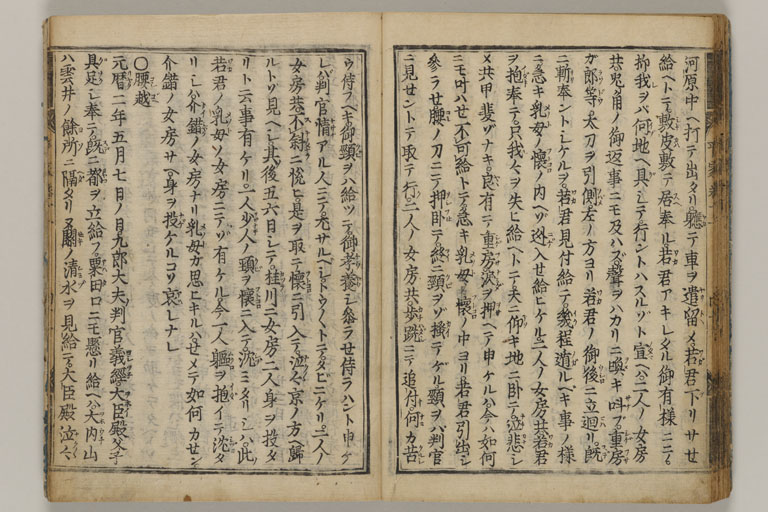 河原中ヘ打テ出タリ懸テ車ヲ遣留メ若君下リサセ
給ヘトテ敷皮敷テ居奉ル若君アキレタル御有様ニテ
抑我ヲバ何地ヘ具シテ行ントハスルゾト宣ヘバ二人ノ女房
共兎角ノ御返事ニモ及ハズ聲ヲハカリニ喚キ叫フ重房
ガ郎等太刀ヲ引側左ノ方ヨリ若君ノ御後ニ立廻リ既
ニ斬奉ントシケルヲ若君見付給テ幾程遁ルヘキ事ノ様
ニ急キ乳母ノ懐ノ内ヘゾ迯入セ給ヒケル二人ノ女房共若君
ヲ抱奉テ只我々ヲ失ヒ給ヘトテ天ニ仰キ地ニ臥テ泣悲シ
メ共甲斐ゾナキ良有テ重房涙ヲ押ヘテ申ケルハ今ハ如何
ニモ叶ハセ不可給トテ急キ乳母ノ懐ノ中ヨリ若君引出シ
参ラセ腰ノ刀ニテ押臥テ終ニ頸ヲゾ掻テケル頸ヲバ判官
ニ見セントテ取テ行二人ノ女房共歩跣ニテ追付何カ苦
ウ侍ラヘキ御頸ヲハ給ツテ御孝養シ参ラセ侍ラハント申ケ
レバ判官情アル人ニテ尤サルヘシトウ〱トテタビニケリ二人ノ
女房卷不斜ニ悦ヒ是ヲ取テ懐ニ引入テ泣々京ノ方ヘ歸
ルトゾ見ヘシ其後五六日シテ桂川ニ女房二人身ヲ投タ
リト云事有ケリ一人少人ノ頸ヲ懐ニ入テ沈ミタリシハ此
若君ノ乳母ノ女房ニテゾ有ケル今一人軀ヲ抱イテ沈タ
リシハ介錯ノ女房ナリ乳母カ思ヒキルハセメテ如何カセン
介錯ノ女房サヘ身ヲ投ケルコソ哀レナレ
〇腰越
元暦二年五月七日ノ日九郎大夫判官義經大臣殿父子
具足シ奉テ既ニ都ヲ立給フ粟田口ニモ懸リ給ヘバ大内山
ハ雲井ノ餘所ニ隔タリヌ關ノ清水ヲ見給テ大臣殿泣々